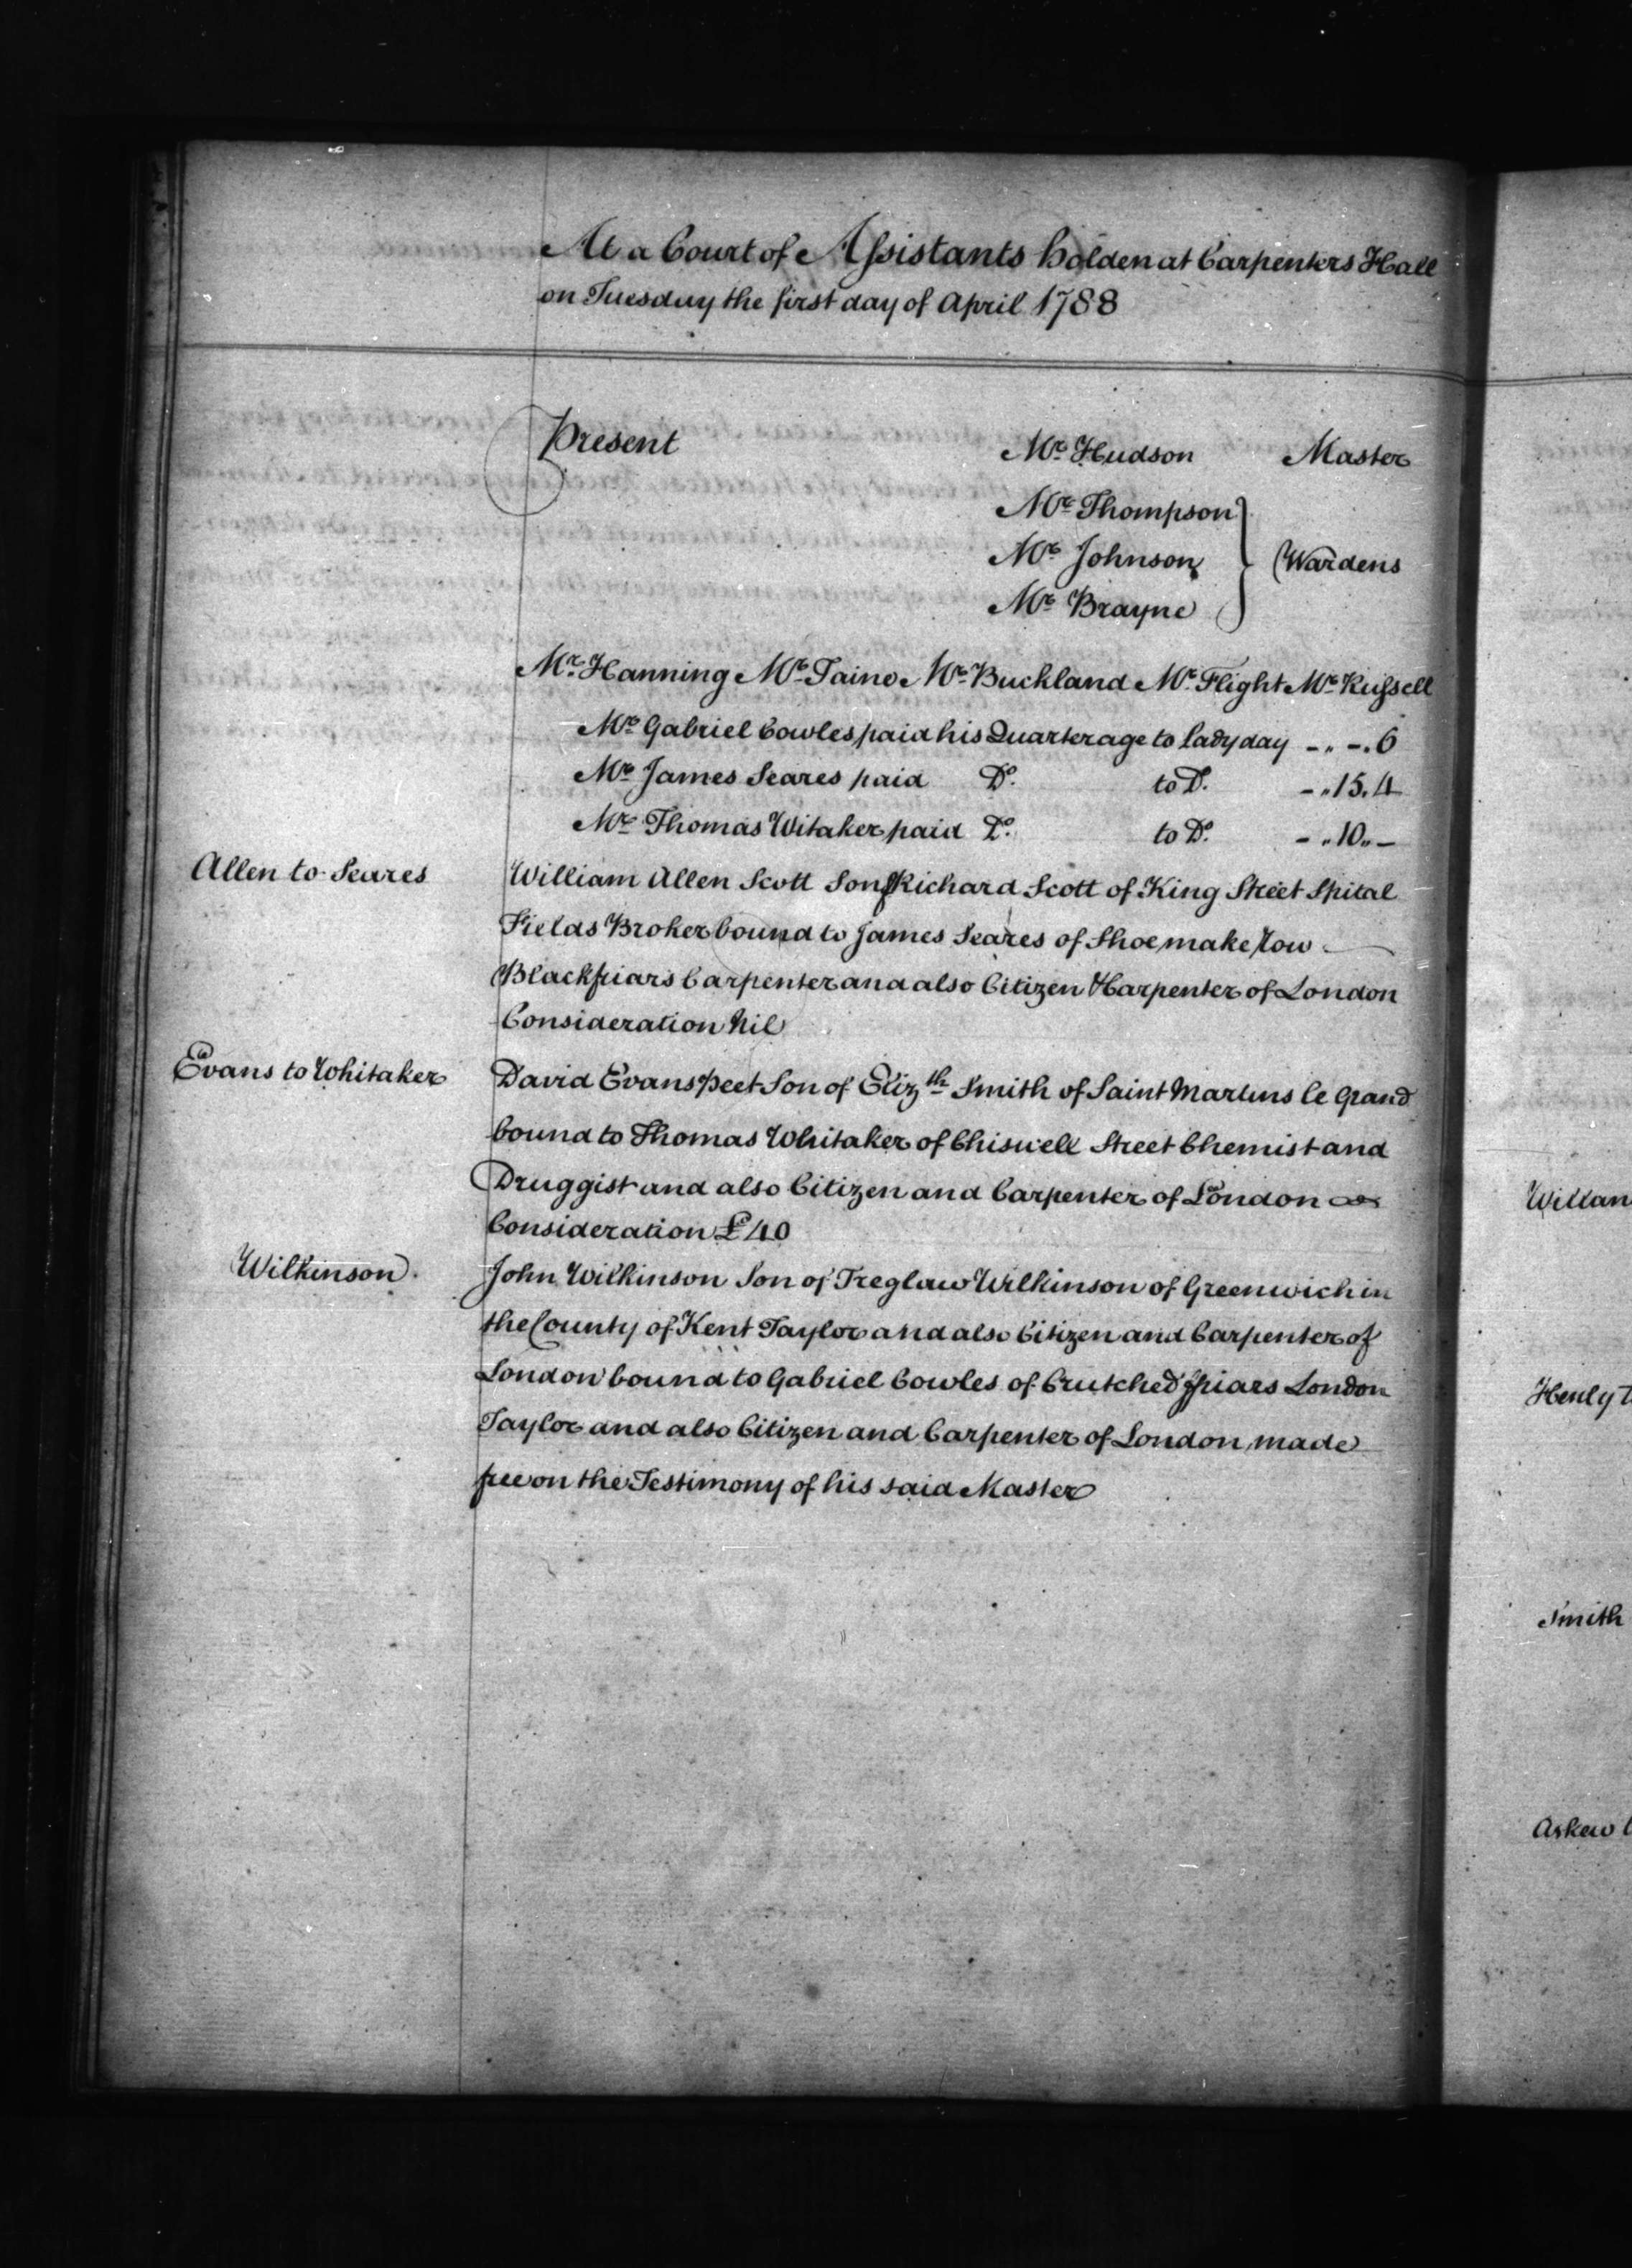 At a Court of Assistants holden at Carpenters Hall
on Tuesday the first day of April 1788
Present
Mr. Hudson Master
Mr. Thompson
Mr. Johnson } Wardens
Mr. Brayne
Mr. Hanning Mr. Mr. Buckland Mr. Flight Mr. Russell
Mr. Gabriel Cowles paid his Quarterage to lady day -.. -. 6
Mr. James Seares paid Do. to Do. - .. 15. 4
Mr. Thomas Witaker paid Do. to Do. - .. 10 .. -
Allen to Seares
William Allen Scott Son of Richard Scott of King Street Spital
Fields Broker bound to James Seares of Shoemake Row
Blackfriars Carpenter and also Citizen & Carpenter of London
Consideration Nil
Evans to Whitaker
David Evans peet Son of Elizth Smith of Saint Martins le Grand
bound to Thomas Whitaker of Chiswell Street Chemist and
Druggist and also Citizen and Carpenter of London
Consideration £40
Wilkinson
John Wilkinson Son of Treglaw Wilkinson of Greenwich in
the County of Kent Taylor and also Citizen and Carpenter of
London bound to Gabriel Cowles of Crutched Friars London
Taylor and also Citizen and Carpenter of London made
free on the Testimony of his said Master
Willan
Henly t
Smith
Askew t